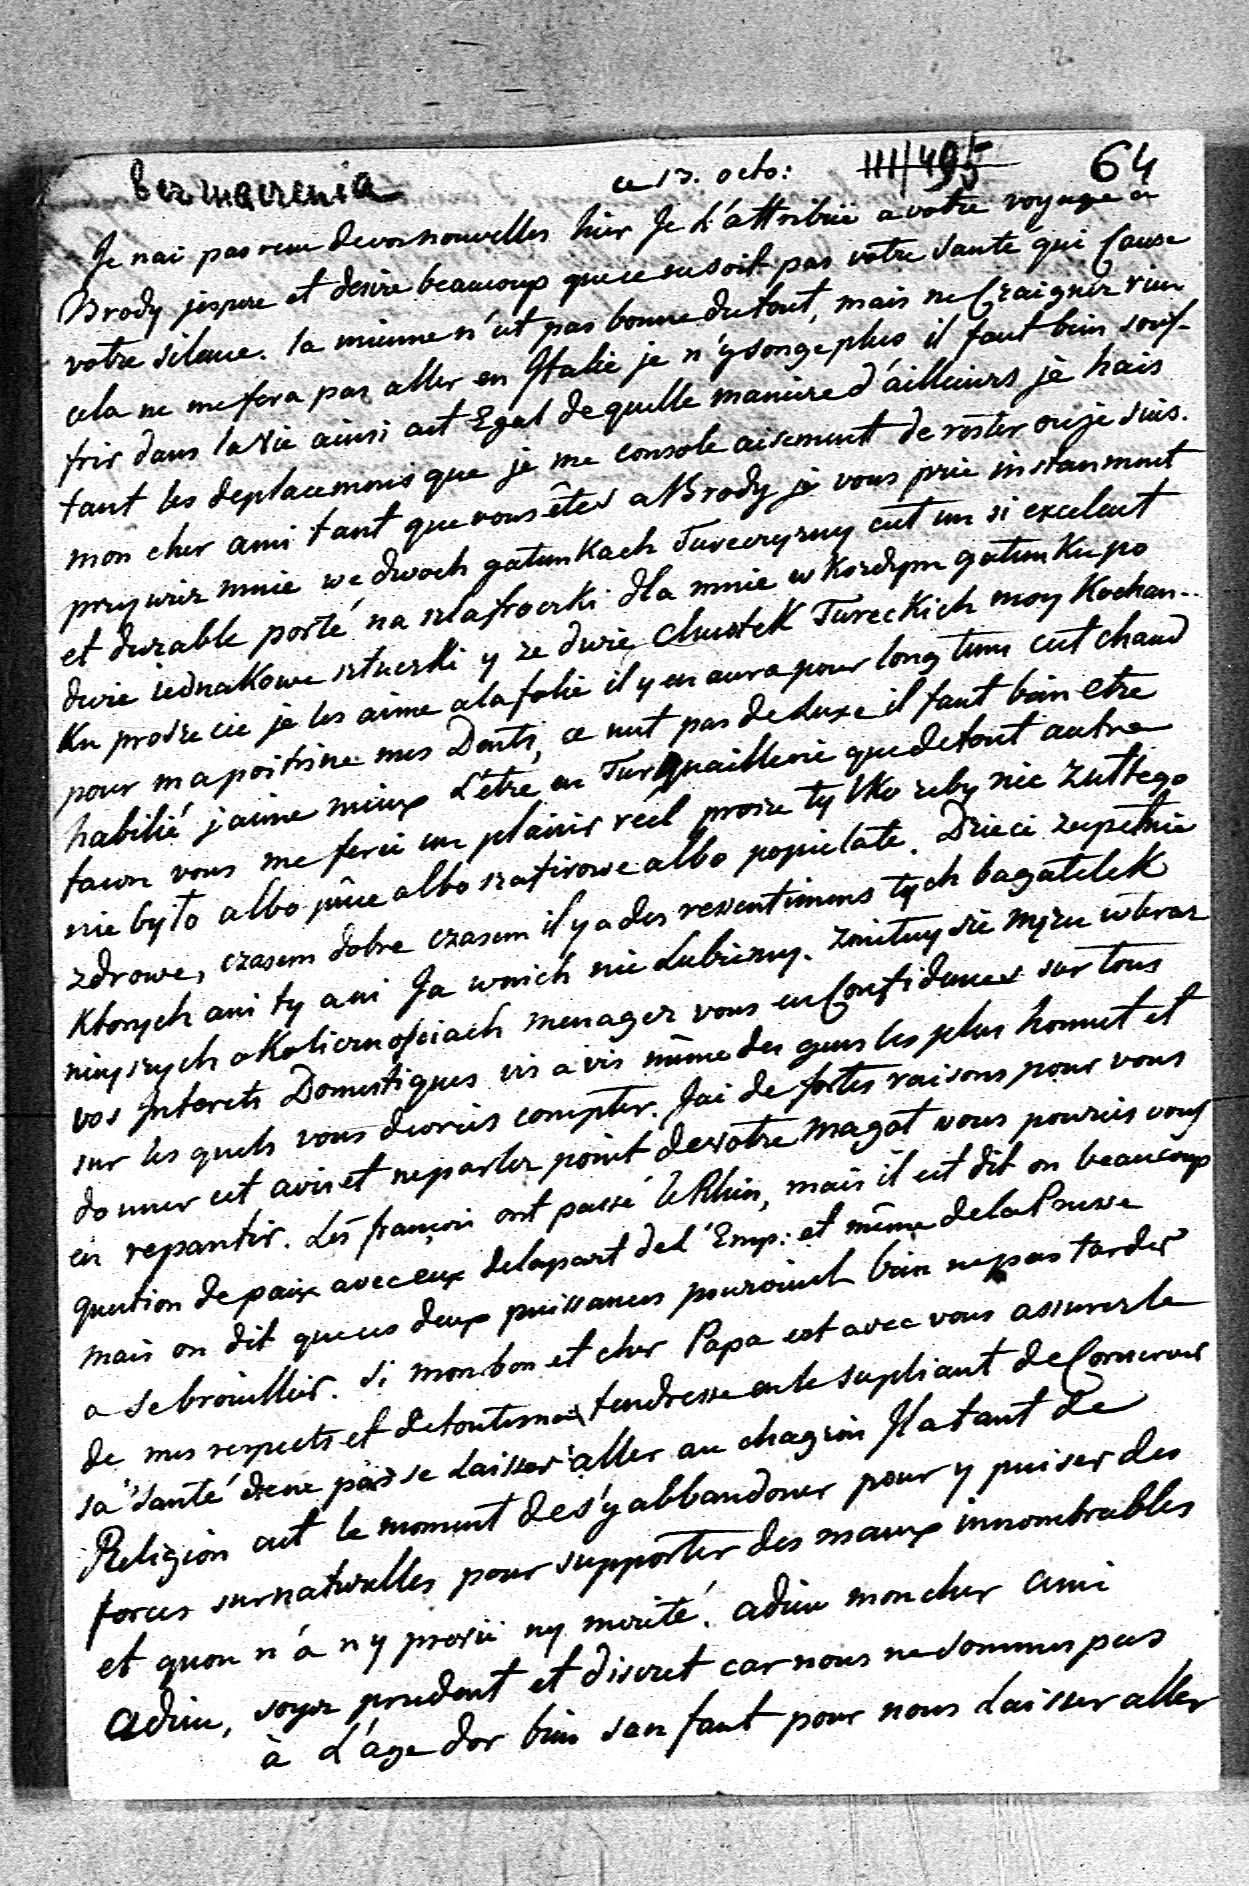 bez znaczenia ce 13. octo: III/495 64
Je nai pas reçu de vos nouvelles hier Je L'attribüe a votre voyage a
Brody jespere et desire beaucoup que ce ne soit pas votre Sante qui Cause
votre silence. la mienne n'est pas bonne du tout, mais ne Craignez rien
cela ne me fera pas aller en Italie je n'y songe plus il faut bien souf-
frir dans la vie ainsi cest Egal de quelle maniere d'ailleurs je hais
tant les deplacemens que je me console aisement de rester ou je suis.
mon cher ami tant que vous êtes a Brody je vous prie instanment
przywiez mnie we dwoch gatunkach Turecczyzny cest un si excelent
et durable porté na szlafroczki dla mnie w kozdym gatunku po
dwie iednakowe sztuczki y ze dwie chustek Tureckich moy Kochan-
Ku prosze cie je les aime a la folie il y en aura pour long tems cest chaud
pour ma poitrine mes Dents, ce nest pas de Luxe il faut bien etre
habilié jaime mieux L'être en Turquaillerie que de tout autre
facon vous me ferie un plaisir réel prosze tylko zeby nic Zułtego
nie było albo pâce albo szafirowe albo popielate. Dzieci zupełnie
zdrowe, czasem dobre czasem il y a des ressentimens tych bagatelek
Ktorych ani ty ani Ja w nich nie Lubiemy. Zmiłuy sie męzu w teraz
nieyszych okolicznosciach menagez vous en Confidences sur tous
vos Interets Domestiques vis a vis même des gens les plus honnet et
sur les quels vous devries compter. Jai de fortes raisons pour vous
donner cet avis et ne parlez point de votre magot vous pouries vous
en repantir. Les françois ont passé le Rhin, mais il est dit on beaucoup
question de paix avec eux de la part de l'Emp: et même de la Prusse
mais on dit que ces deux puissances pouroient bien ne pas tarder
a se brouillier. Si mon bon et cher Papa est avec vous assurez le
de mes respects et de toute ma tendresse en le supliant de Conserver
sa Santé de ne pas se Laisser aller au chagrin Il a tant de
Religion cest le moment de s'y abbandoner pour y puiser des
forces surnaturelles pour supporter des maux innombrables
et quon n'a n y prevü ny merité. adieu mon cher ami
adieu, soyez prudent et discret car nous ne sommes pas
à L'age dor bien sen faut pour nous Laisser aller